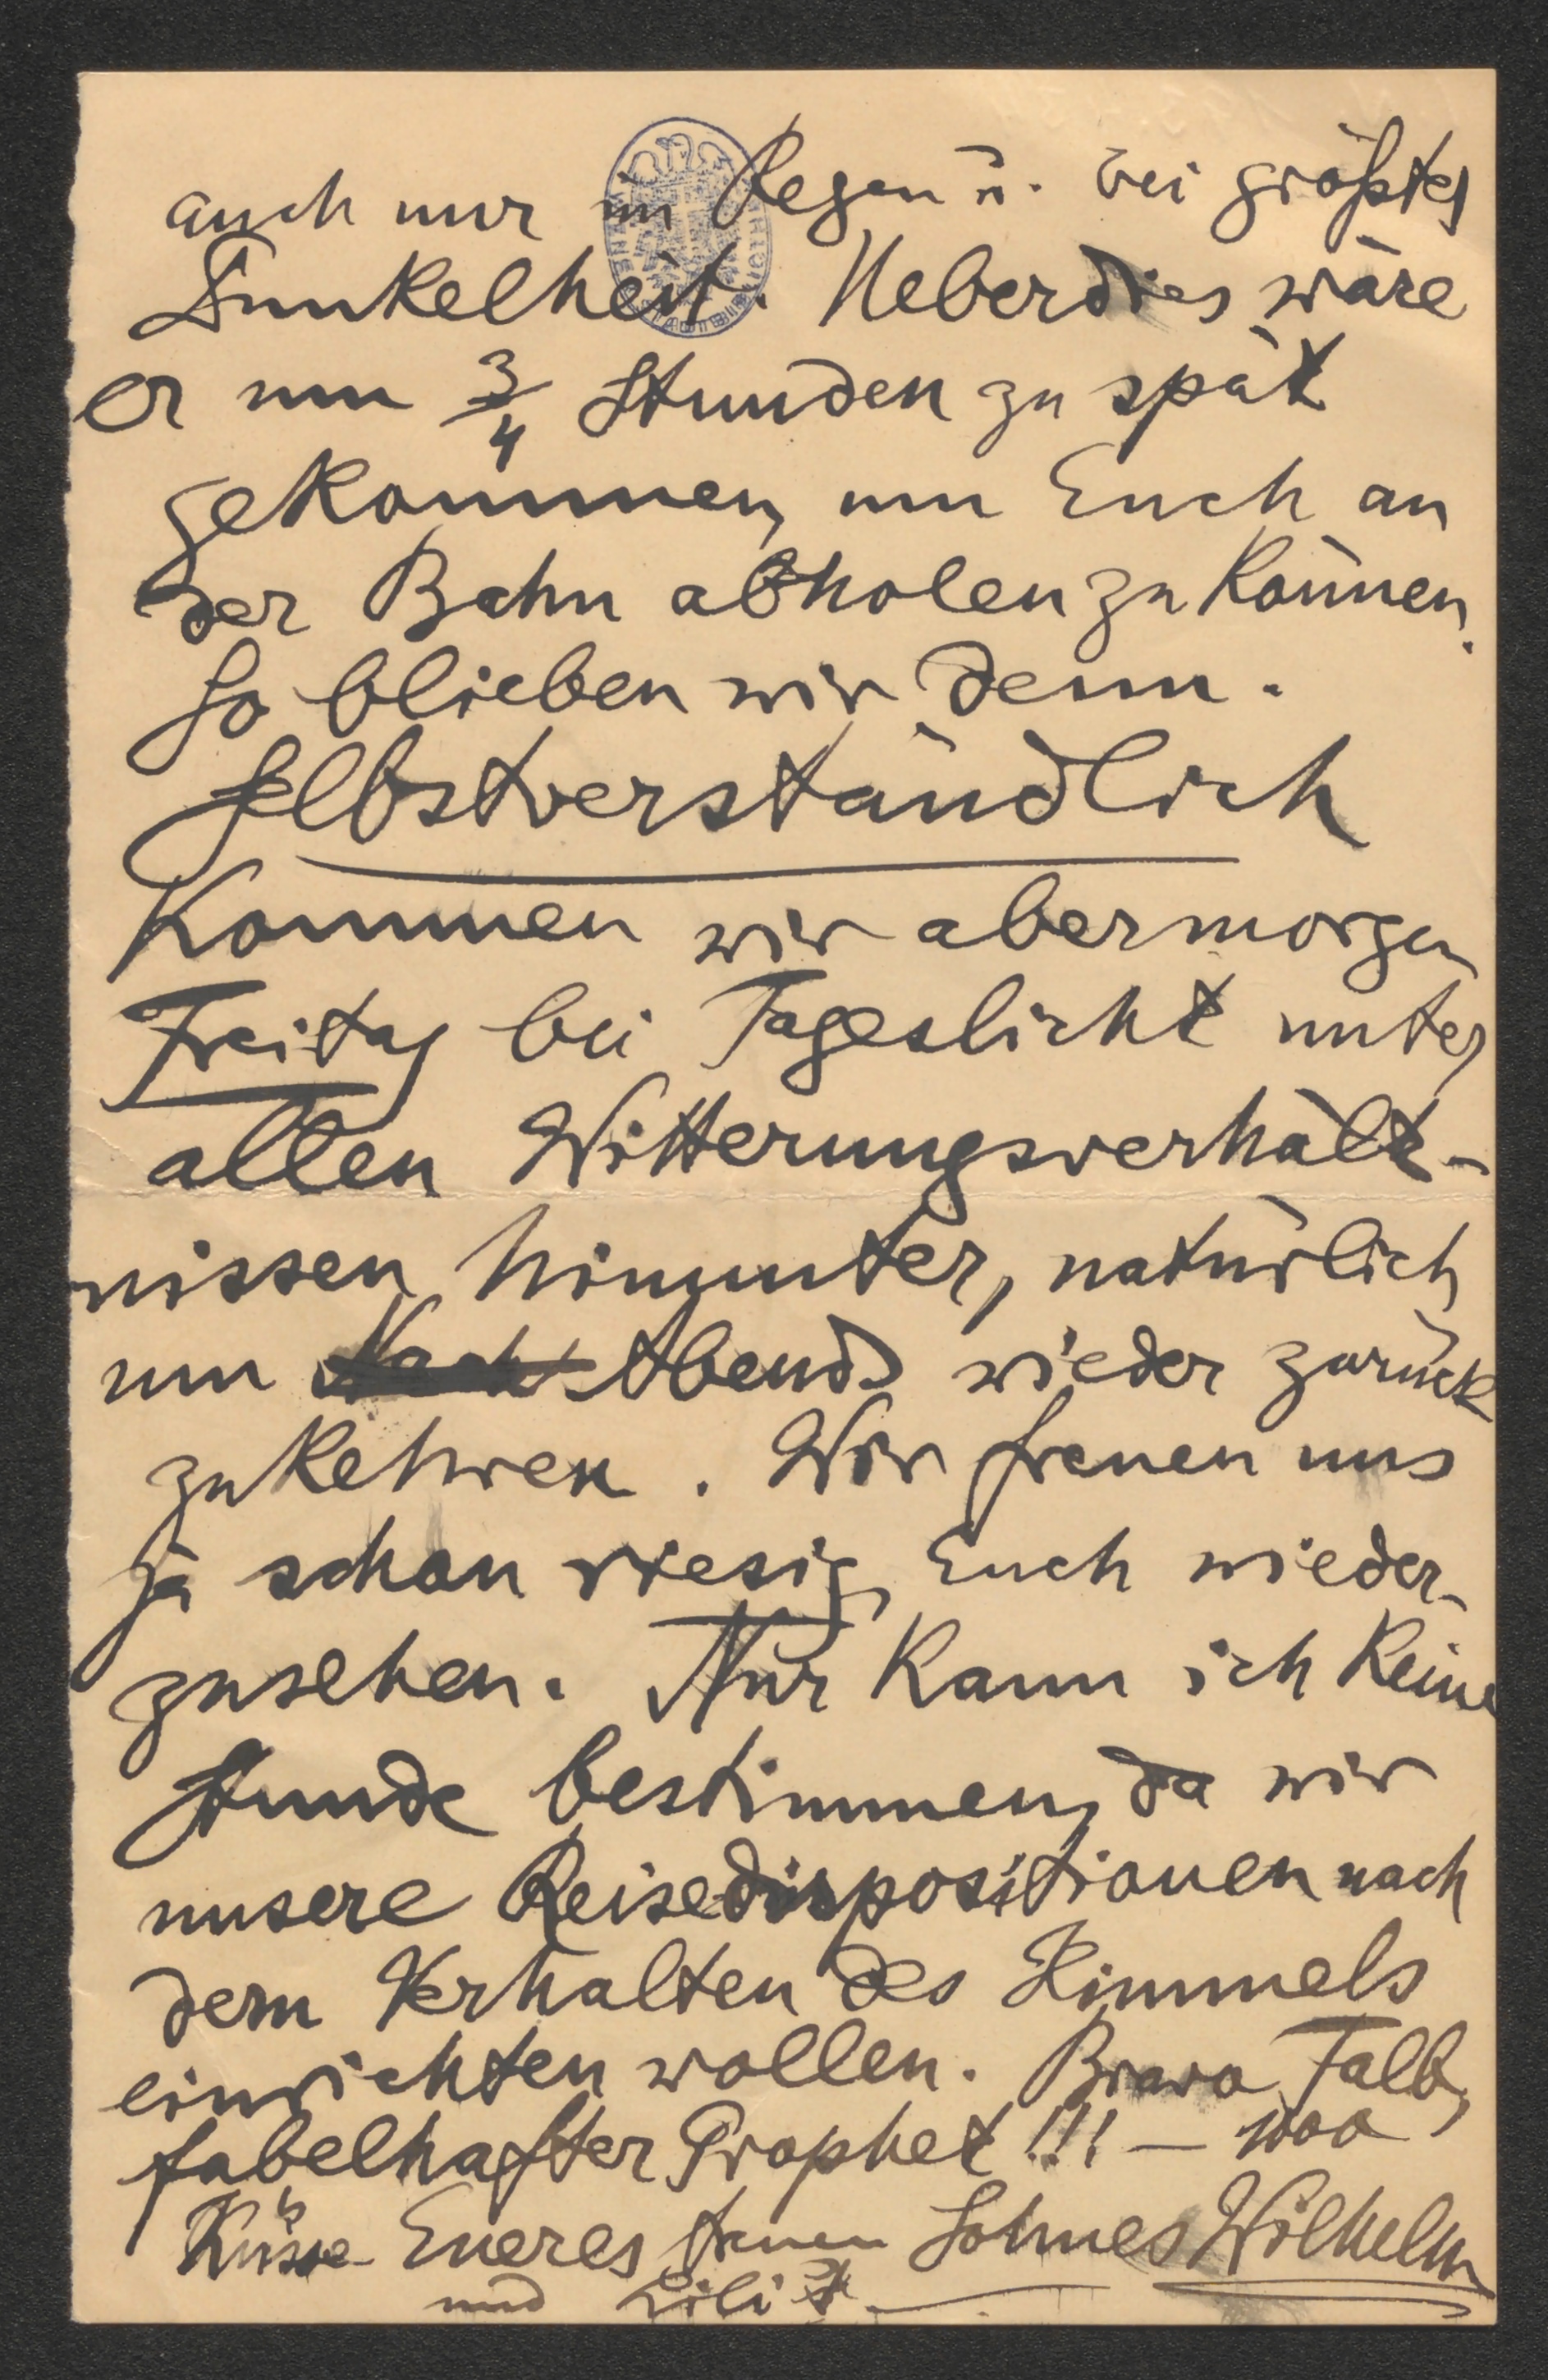 auch nur im Regen u. bei größter
Dunkelheit. Ueberdies wäre
er um 3/4 Stunden zu spät
gekommen, um Euch an
der Bahn abholen zu können.
So blieben wir denn.
Selbstverständlich
kommen wir aber morgen
Freitag bei Tageslicht unter
allen Witterungsverhält-
nissen hinunter, natürlich
um Abends wieder zurück
zukehren. Wir freuen uns
ja schon riesig, Euch wieder-
zusehen. Nur kann ich keine
Stunde bestimmen, da wir
unsere Reisedispositionen nach
dem Verhalten des Himmels
einrichten wollen. Bravo Falb,
fabelhafter Prophet!!! — 1000
Küsse Eueres treuen Sohnes Wilhelm
und Lili